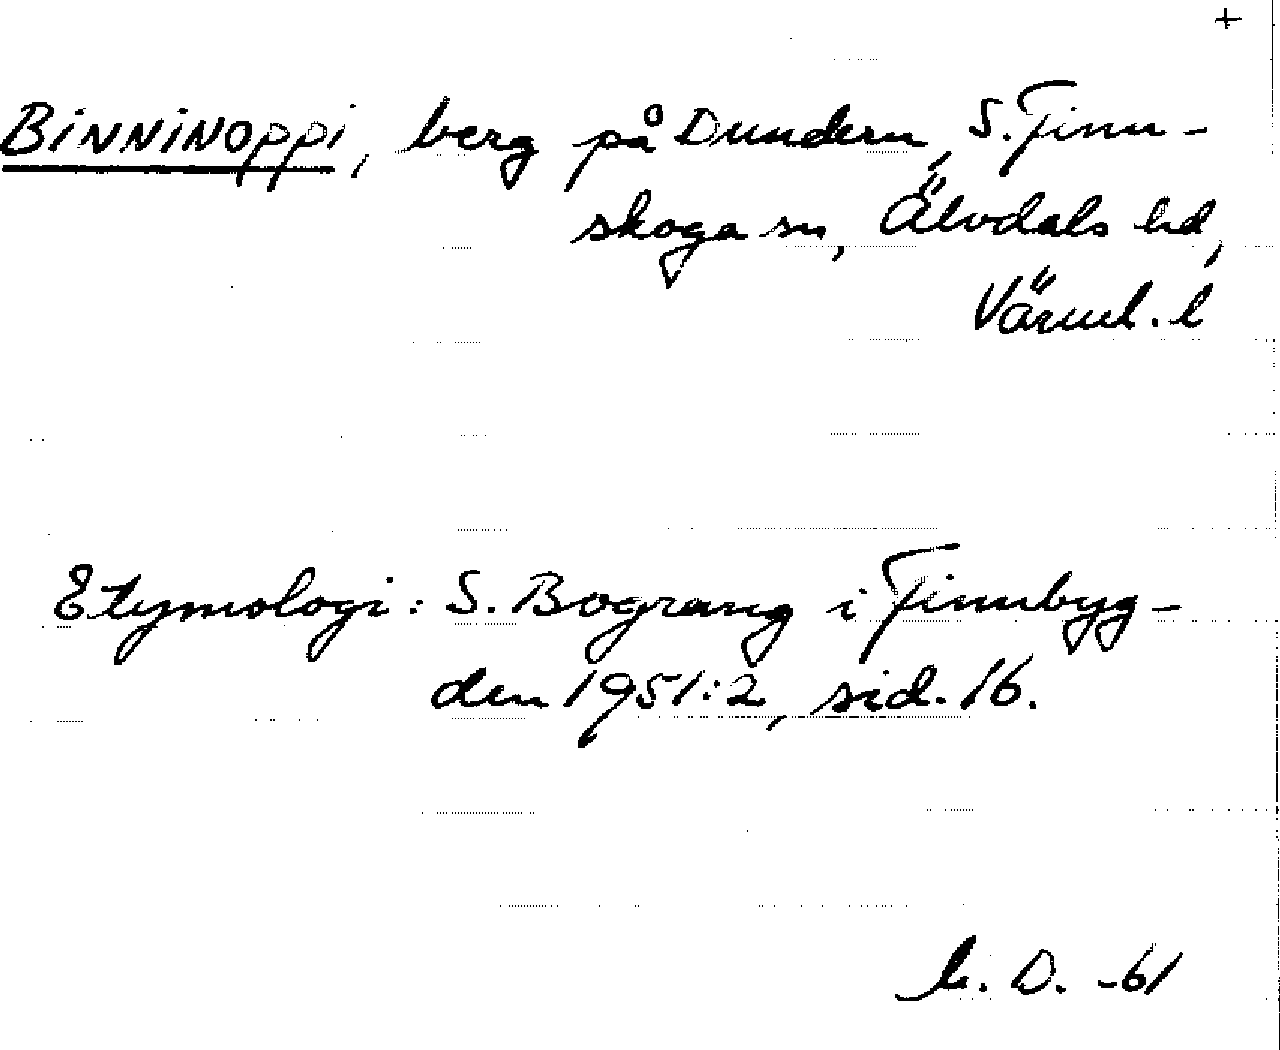 +
BINNINOPPI, berg på Dundern, S. Finn-
skoga sn, Älvdals hd,
Värml. l
Etymologi: S. Bograng i Finnbyg-
den 1951:2, sid. 16.
D. -61